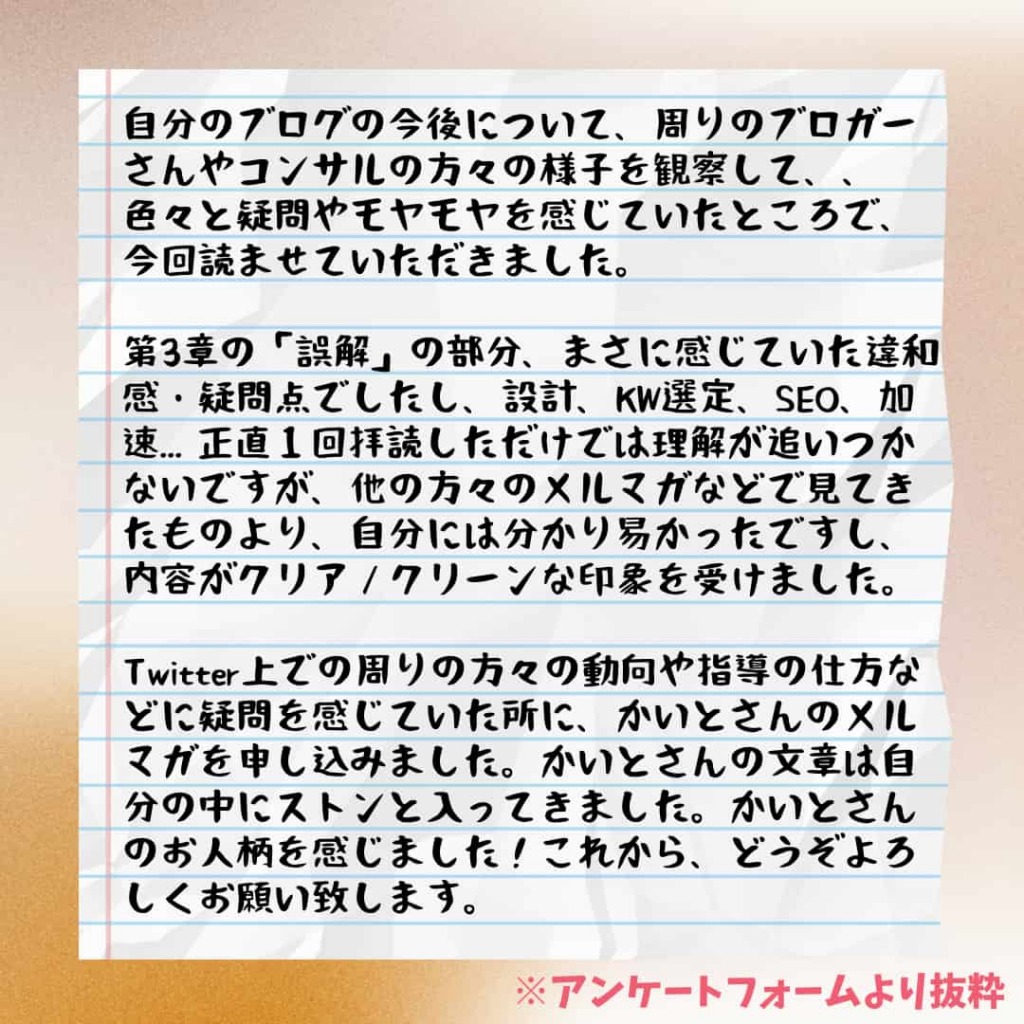 自分のブログの今後について、周りのブロガー
さんやコンサルの方々の様子を観察して、、
色々と疑問やモヤモヤを感じていたところで、
今回読ませていただきました。
第3章の「誤解」の部分、まさに感じていた違和
感・疑問点でしたし、設計、KW選定、SEO、加
速... 正直１回拝読しただけでは理解が追いつか
ないですが、他の方々のメルマガなどで見てき
たものより、自分には分かり易かったですし、
内容がクリア / クリーンな印象を受けました。
Twitter上での周りの方々の動向や指導の仕方な
どに疑問を感じていた所に、かいとさんのメル
マガを申し込みました。かいとさんの文章は自
分の中にストンと入ってきました。かいとさん
のお人柄を感じました！これから、どうぞよろ
しくお願い致します。
※アンケートフォームより抜粋